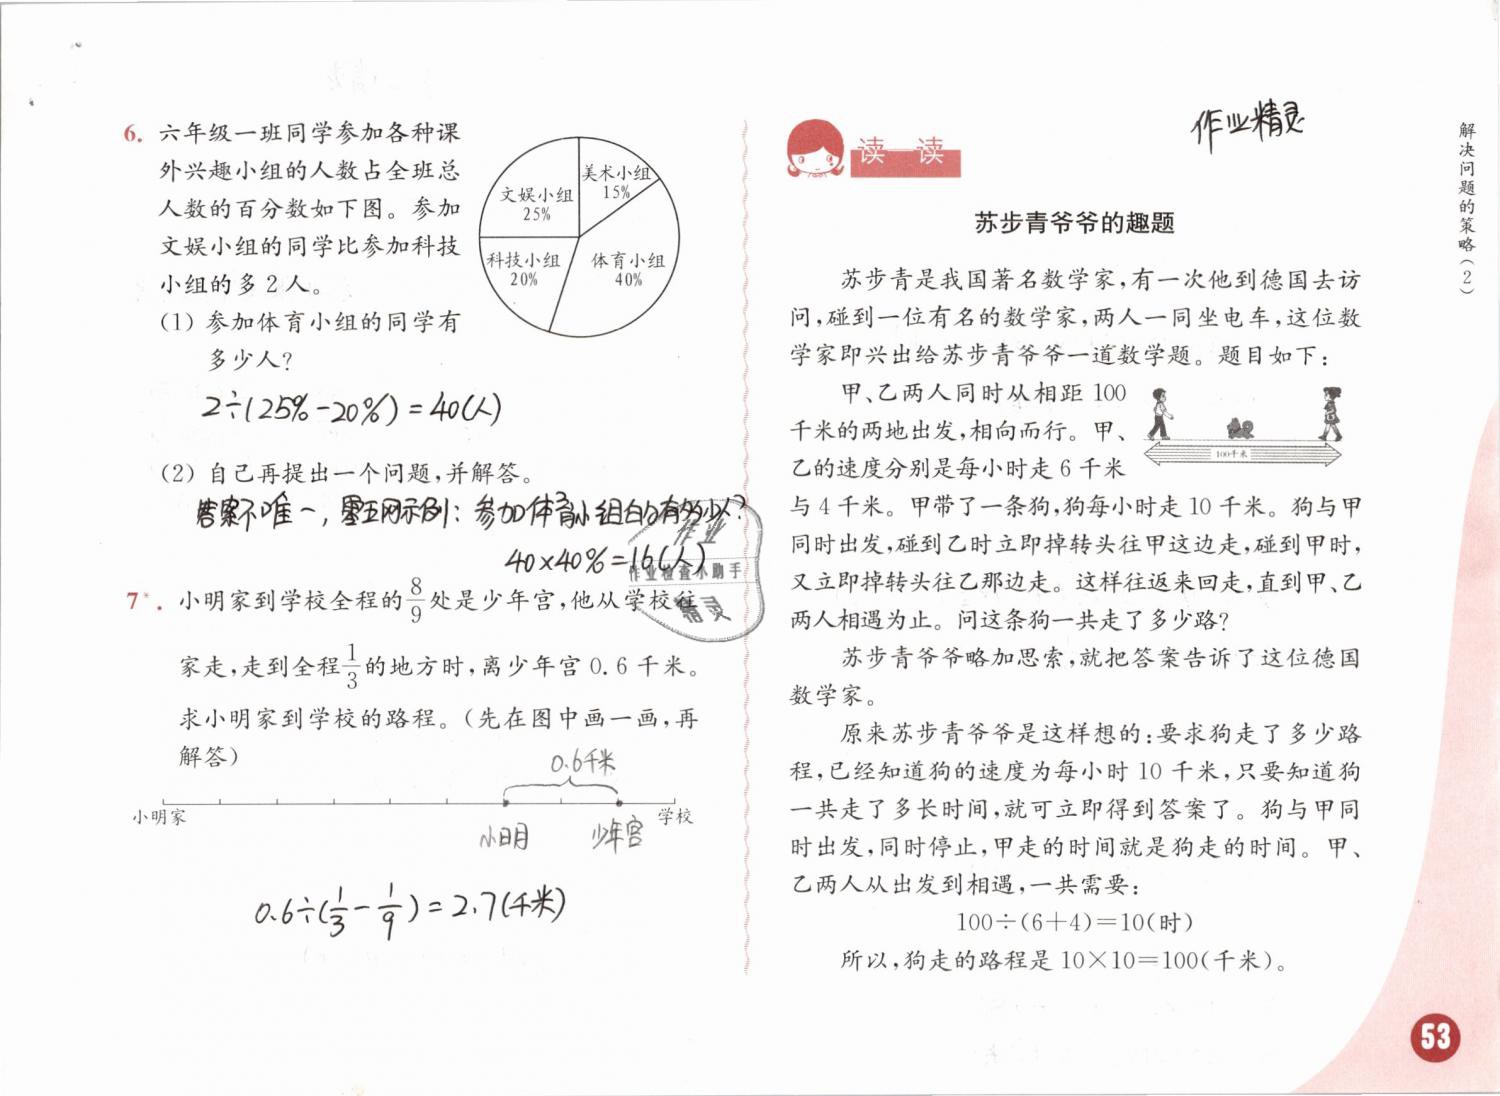 6. 六年级一班同学参加各种课
外兴趣小组的人数占全班总
人数的百分数如下图。参加
文娱小组的同学比参加科技
小组的多2人。
文娱小组
25%
美术小组
15%
科技小组
20%
体育小组
40%
(1) 参加体育小组的同学有
多少人?
2÷(25%-20%)=40(人)
(2) 自己再提出一个问题,并解答。
答案不唯一,零五网示例:参加体育小组的有多少人?
40×40%=16(人)
作业
作业检查小助手
精灵
7*. 小明家到学校全程的8/9处是少年宫,他从学校往
家走,走到全程1/3的地方时,离少年宫0.6千米。
求小明家到学校的路程。(先在图中画一画,再
解答)
0.6千米
小明家
学校
小明
少年宫
0.6÷(1/3-1/9)=2.7(千米)
作业精灵
读一读
苏步青爷爷的趣题
苏步青是我国著名数学家,有一次他到德国去访
问,碰到一位有名的数学家,两人一同坐电车,这位数
学家即兴出给苏步青爷爷一道数学题。题目如下:
甲、乙两人同时从相距100
千米的两地出发,相向而行。甲、
乙的速度分别是每小时走6千米
100千米
与4千米。甲带了一条狗,狗每小时走10千米。狗与甲
同时出发,碰到乙时立即掉转头往甲这边走,碰到甲时,
又立即掉转头往乙那边走。这样往返来回走,直到甲、乙
两人相遇为止。问这条狗一共走了多少路?
苏步青爷爷略加思索,就把答案告诉了这位德国
数学家。
原来苏步青爷爷是这样想的:要求狗走了多少路
程,已经知道狗的速度为每小时10千米,只要知道狗
一共走了多长时间,就可立即得到答案了。狗与甲同
时出发,同时停止,甲走的时间就是狗走的时间。甲、
乙两人从出发到相遇,一共需要:
100÷(6+4)=10(时)
所以,狗走的路程是10×10=100(千米)。
解决问题的策略(2)
53